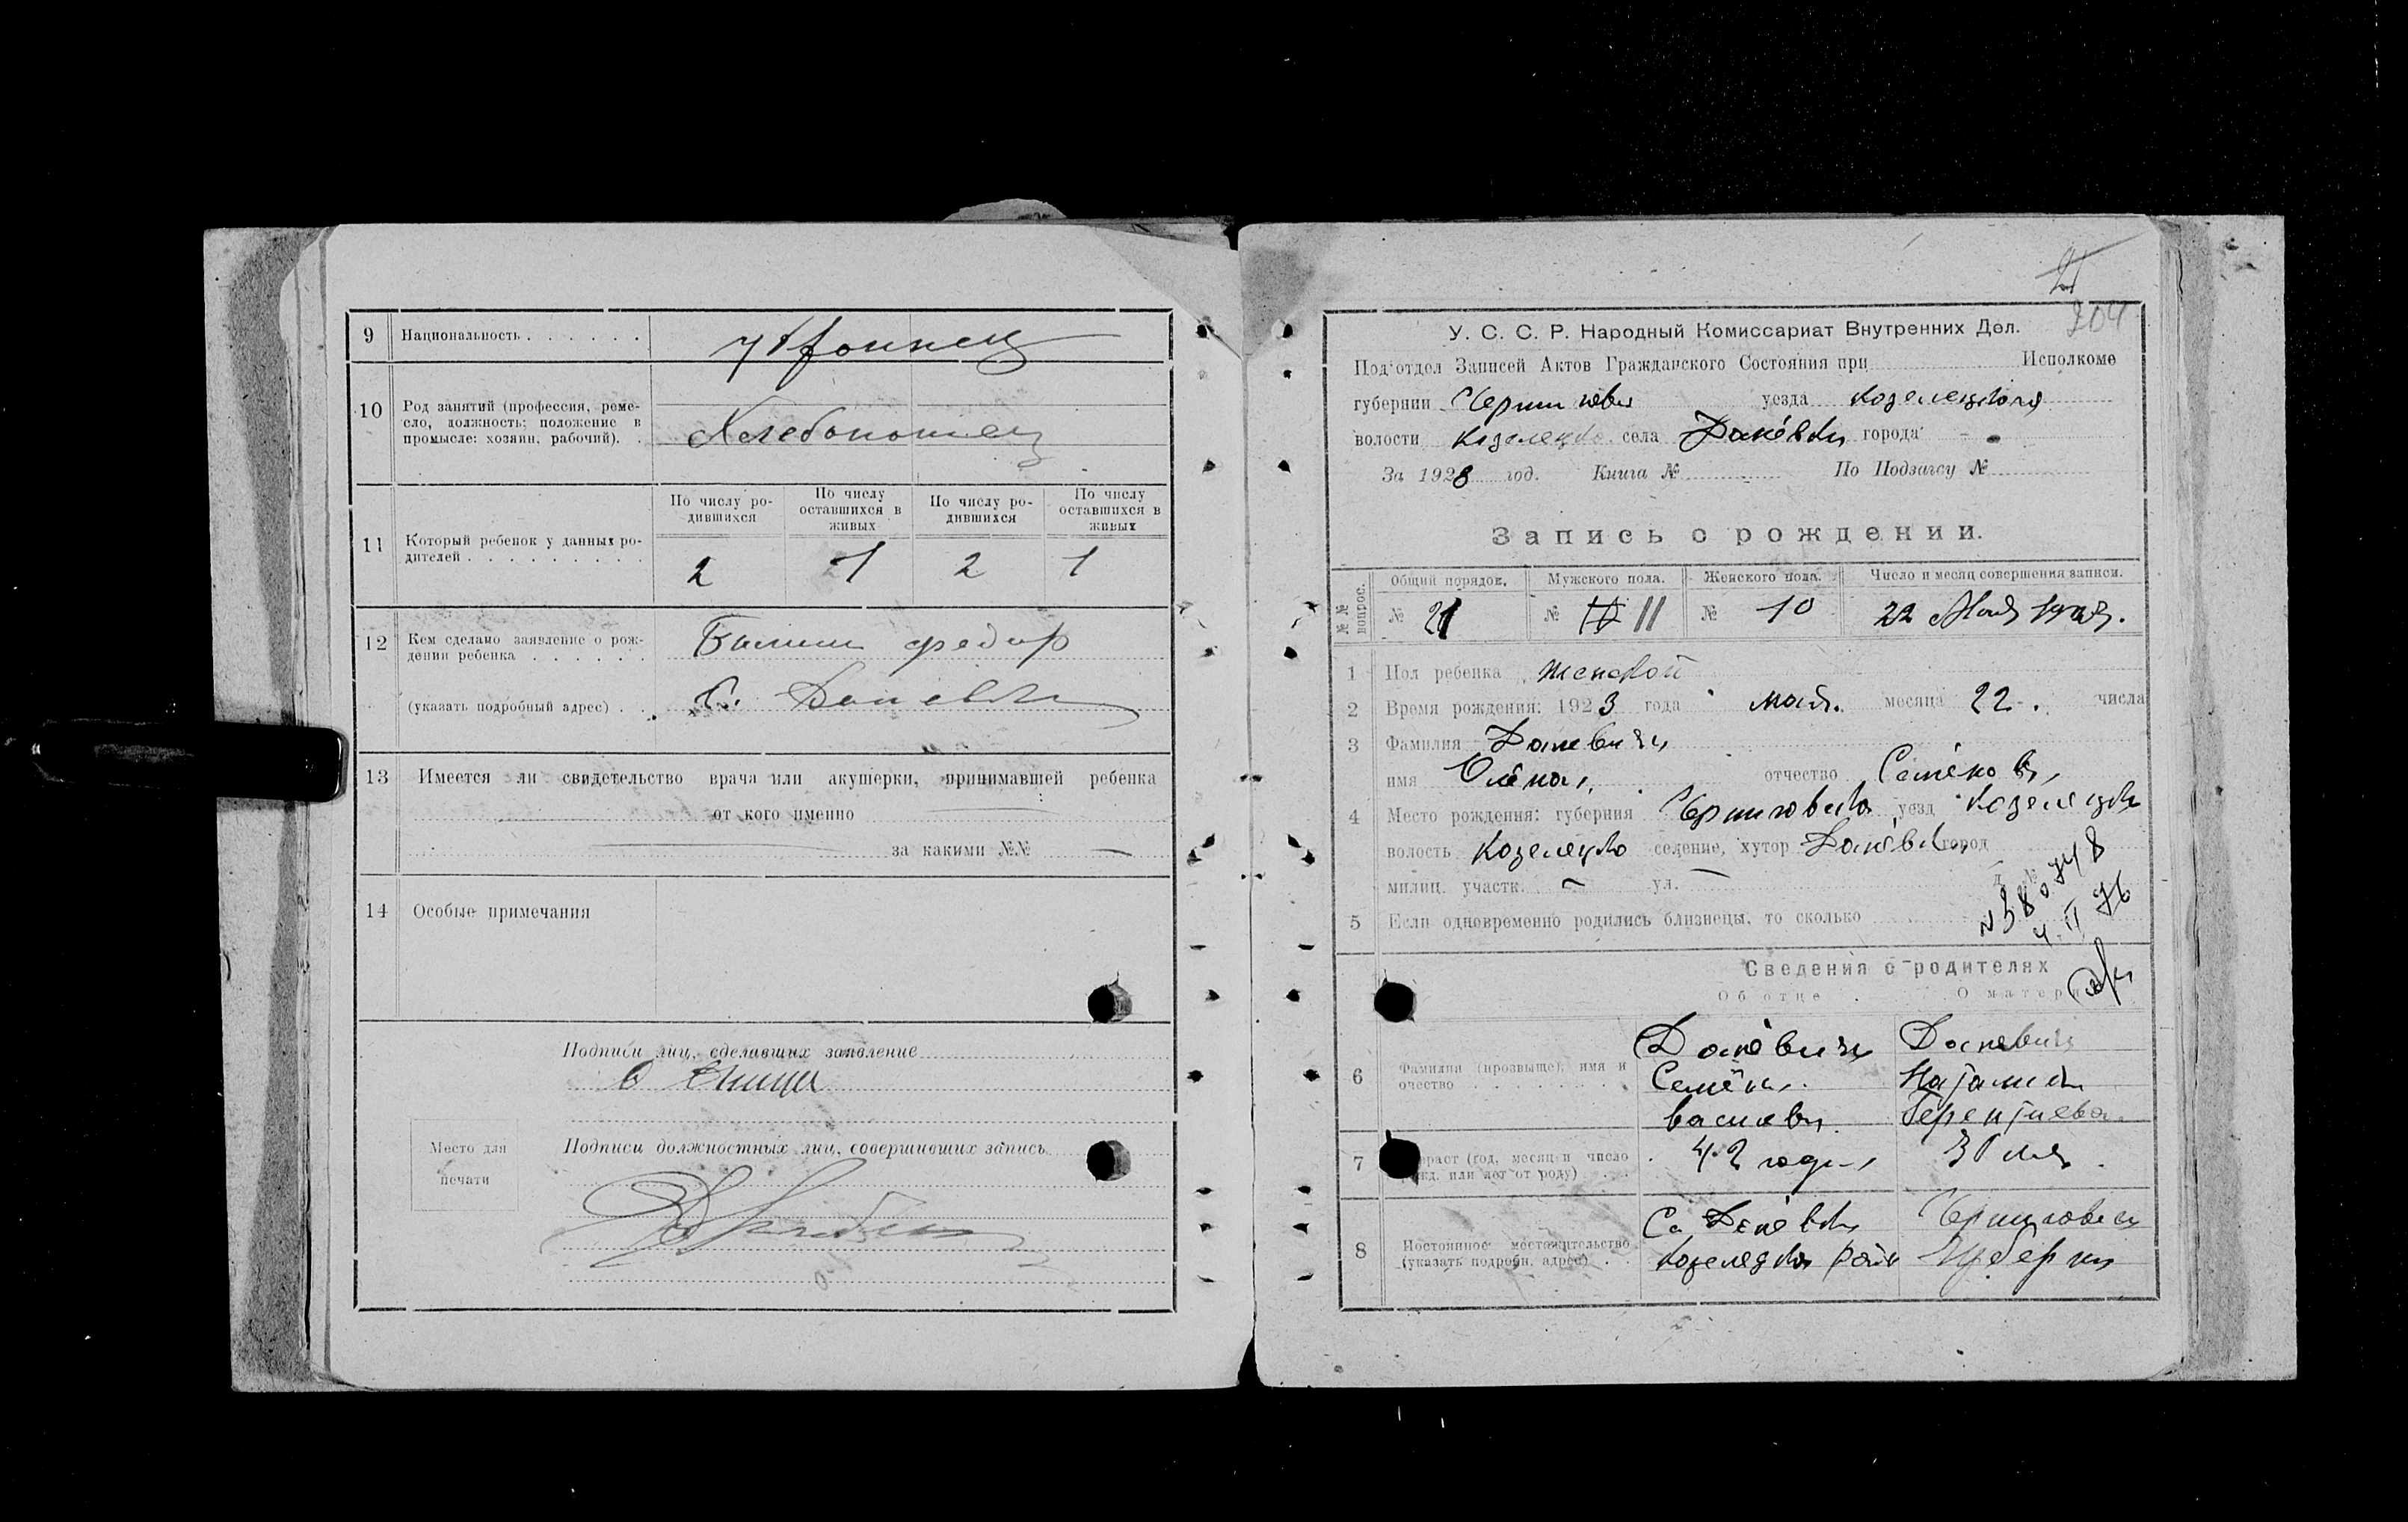 9 Национальность . . . . . . Украинец
10 Род занятий (профессия, реме-
сло, должность; положение в
промысле: хозяин, рабочий). .
Хлебопашец
11 Который ребенок у данных ро-
дителей . . . . . . . . .
По числу ро-
дившихся
По числу
оставшихся в
живых
По числу ро-
дившихся
По числу
оставшихся в
живых
2 1 2 1
12 Кем сделано заявление о рож-
дении ребенка . . . . . .
Федир
(указать подробный адрес) . . С. Даневки
13 Имеется ли свидетельство врача или акушерки, принимавшей ребенка
от кого именно
за какими №№ —
14 Особые примечания
Подписи лиц, сделавших заявление
Место для
печати
Подписи должностных лиц, совершивших запись
204
У. С. С. Р. Народный Комиссариат Внутренних Дел.
Под'отдел Записей Актов Гражданского Состояния при Исполкоме
губернии Чернигови уезда Козелецкого
волости Козелецко села Данёвки города -
За 1928 год. Книга № По Подзагсу №
Запись о рождении.
№№ вопрос.
Общий порядок. Мужского пола. Женского пола. Число и месяц совершения записи.
№ 21 № 11 № 10 22 Мая 1923.
1 Пол ребенка женской
2 Время рождения: 1923 года мая. месяца 22. числа
3 Фамилия Даневичь
имя Олёна отчество Семёнова
4 Место рождения: губерния Черниговска уезд Козелецки
волость Козелецко селение, хутор Данёвки город
милиц. участк. – ул. –
№ 380748
4. II 76
5 Если одновременно родились близнецы, то сколько
Сведения о родителях
Об отце О матери
6 Фамилия (прозвище), имя и
очество
Данёвичь
Семёнъ
Васильевъ
Даневичь
Наталия
Терентиева
7 Возраст (год, месяц и число
рожд. или лет от роду) . .
42 года
30 лет
8 Постоянное местожительство
(указать подробн. адрес) . .
Со Данёвки
Козелецкого район
Черниговси
Губерни